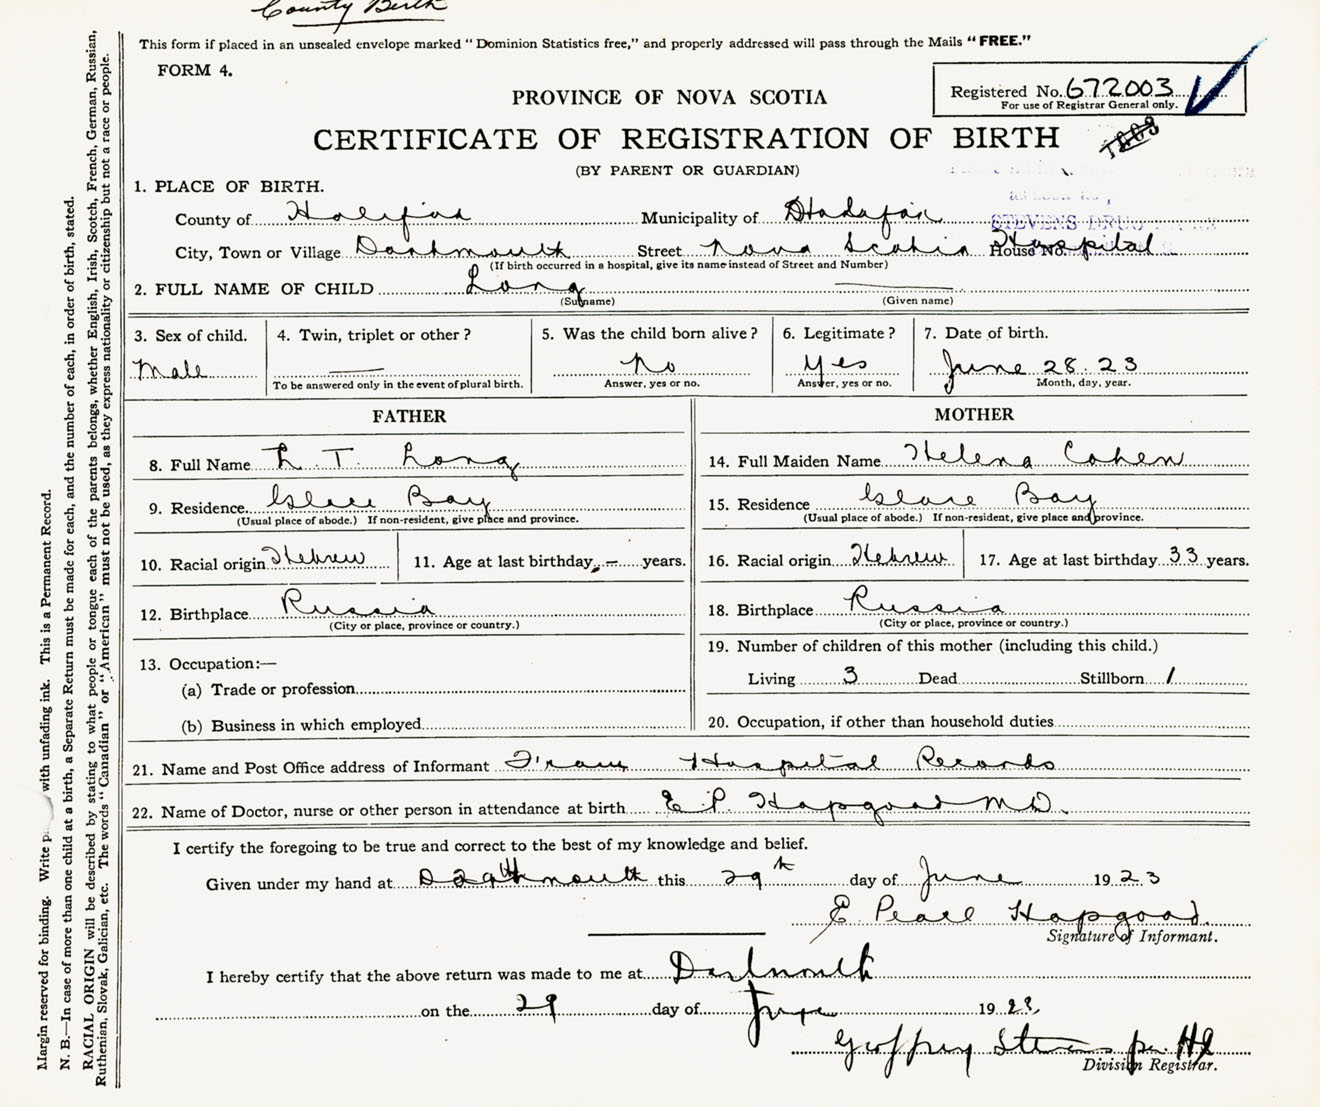 County Birth
This form if placed in an unsealed envelope marked "Dominion Statistics free," and properly addressed will pass through the Mails "FREE."
FORM 4.
Registered No. 672003
For use of Registrar General only.
PROVINCE OF NOVA SCOTIA
CERTIFICATE OF REGISTRATION OF BIRTH
(BY PARENT OR GUARDIAN)
1. PLACE OF BIRTH.
County of Halifax Municipality of
STEVENS DRUG
City, Town or Village Dartmouth Street Nova Scotia House No. Hospital
(If birth occurred in a hospital, give its name instead of Street and Number)
2. FULL NAME OF CHILD Long
(Surname) (Given name)
3. Sex of child. 4. Twin, triplet or other? 5. Was the child born alive? 6. Legitimate? 7. Date of birth.
Male — No Yes June 28. 23
To be answered only in the event of plural birth. Answer, yes or no. Answer, yes or no. Month, day, year.
FATHER MOTHER
8. Full Name L. T. Long 14. Full Maiden Name Helena Cohen
9. Residence Glace Bay 15. Residence Glace Bay
(Usual place of abode.) If non-resident, give place and province. (Usual place of abode.) If non-resident, give place and province.
10. Racial origin Hebrew 11. Age at last birthday — years. 16. Racial origin Hebrew 17. Age at last birthday 33 years.
12. Birthplace Russia 18. Birthplace Russia
(City or place, province or country.) (City or place, province or country.)
13. Occupation:— 19. Number of children of this mother (including this child.)
(a) Trade or profession Living 3 Dead Stillborn 1
(b) Business in which employed 20. Occupation, if other than household duties
21. Name and Post Office address of Informant From Hospital Records
22. Name of Doctor, nurse or other person in attendance at birth E P. Hapgood M.D.
I certify the foregoing to be true and correct to the best of my knowledge and belief.
Given under my hand at Dartmouth this 29th day of June 1923
E Pearl Hapgood.
Signature of Informant.
I hereby certify that the above return was made to me at Dartmouth
on the 29 day of June 1923,
Geoffrey Stevens per HS
Division Registrar.
Margin reserved for binding. Write with unfading ink. This is a Permanent Record.
N. B.—In case of more than one child at a birth, a Separate Return must be made for each, and the number of each, in order of birth, stated.
RACIAL ORIGIN will be described by stating to what people or tongue each of the parents belongs, whether English, Irish, Scotch, French, German, Russian,
Ruthenian, Slovak, Galician, etc. The words "Canadian" or "American" must not be used, as they express nationality or citizenship but not a race or people.